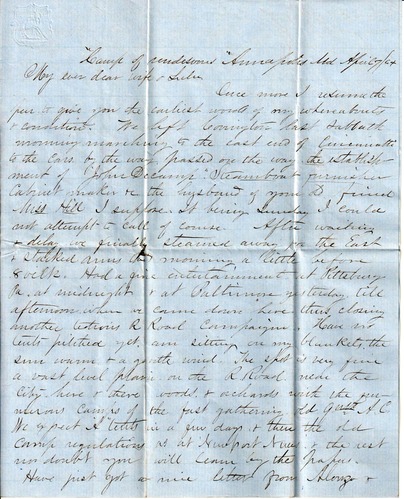 "Camp of rendesvous" Annapolis Md April 7/64
My ever dear wife & Lulu
Once more I resume the
pen to give you the earliest words of my whereabouts
& condition. We left Covington last Sabbath
morning marching to the east end of Cincinnatti
to the cars & the way passed on the way the establish
ment of "John Decamp" "Steamboat furnisher
Cabinet maker & the husband of your
Miss Hill I suppose it being Sunday I could
not attempt to call of course. After waiting
& delay we finally steamed away for the East
& Stacked arms this morning a little before
8 oclk. Had a fine entertainment at Pittsburg
Pa. at midnight & at Baltimore yesterday till
afternoon when we came down here thus closing
another tedious R Road Campaign. Have no
tents pitched yet. am sitting on my blankets, the
sun warm & a gentle wind. The spot is very fine
a vast level plain on the R Road near the
City here & there woods & orchards with the nu-
merous camps of the fast gathering old 9th A.C.
We expect tents in a few days & then the old
camp regulations as at Newport News & the rest
no doubt you will learn by the papers.
Have just got a nice letter from Alonzo &